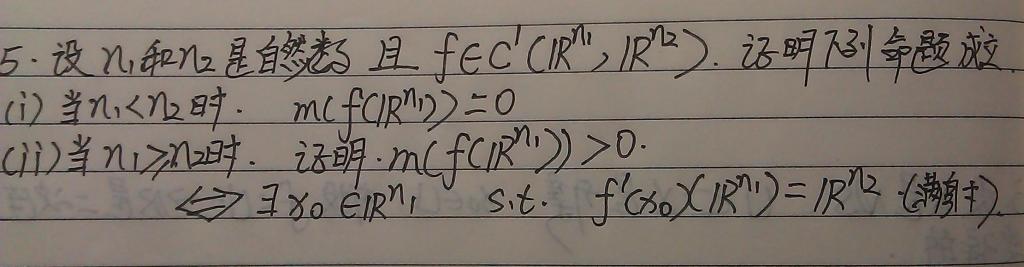 5. 设 n₁和n₂是自然数 且 f∈C'(ℝⁿ¹, ℝⁿ²). 证明下列命题成立.
(i) 当n₁<n₂时. m(f(ℝⁿ¹))=0
(ii) 当n₁≥n₂时. 证明. m(f(ℝⁿ¹))>0.
⟺ ∃x₀∈ℝⁿ¹ s.t. f'(x₀)(ℝⁿ¹)=ℝⁿ² (满射).